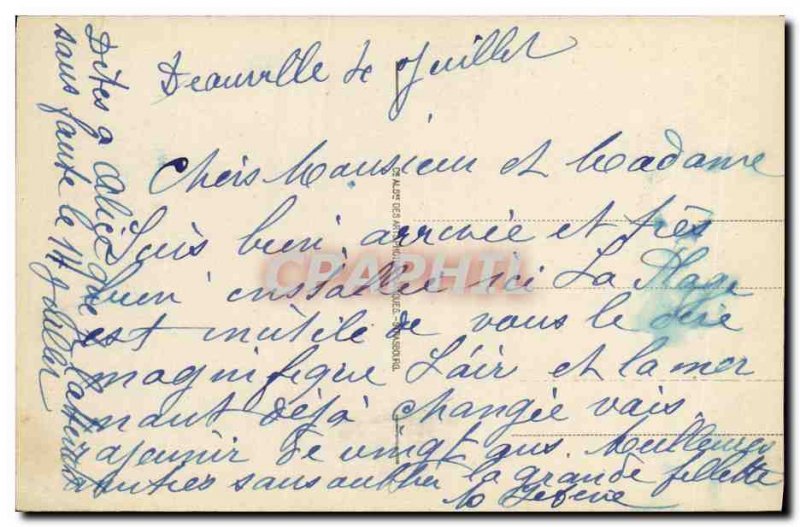 Deauville le 4 Juillet
Chers Monsieur et Madame
Suis bien arrivée et très
bien installée ici La Plage
est inutile de vous le dire
magnifique L'air et la mer
m'ont déjà changée vais
rajeunir de vingt ans. Meilleures
amitiés sans oublier la grande fillette
Dites a Alice que
sans faute le 14 Juillet
CRAPHTL
STRASBOURG.